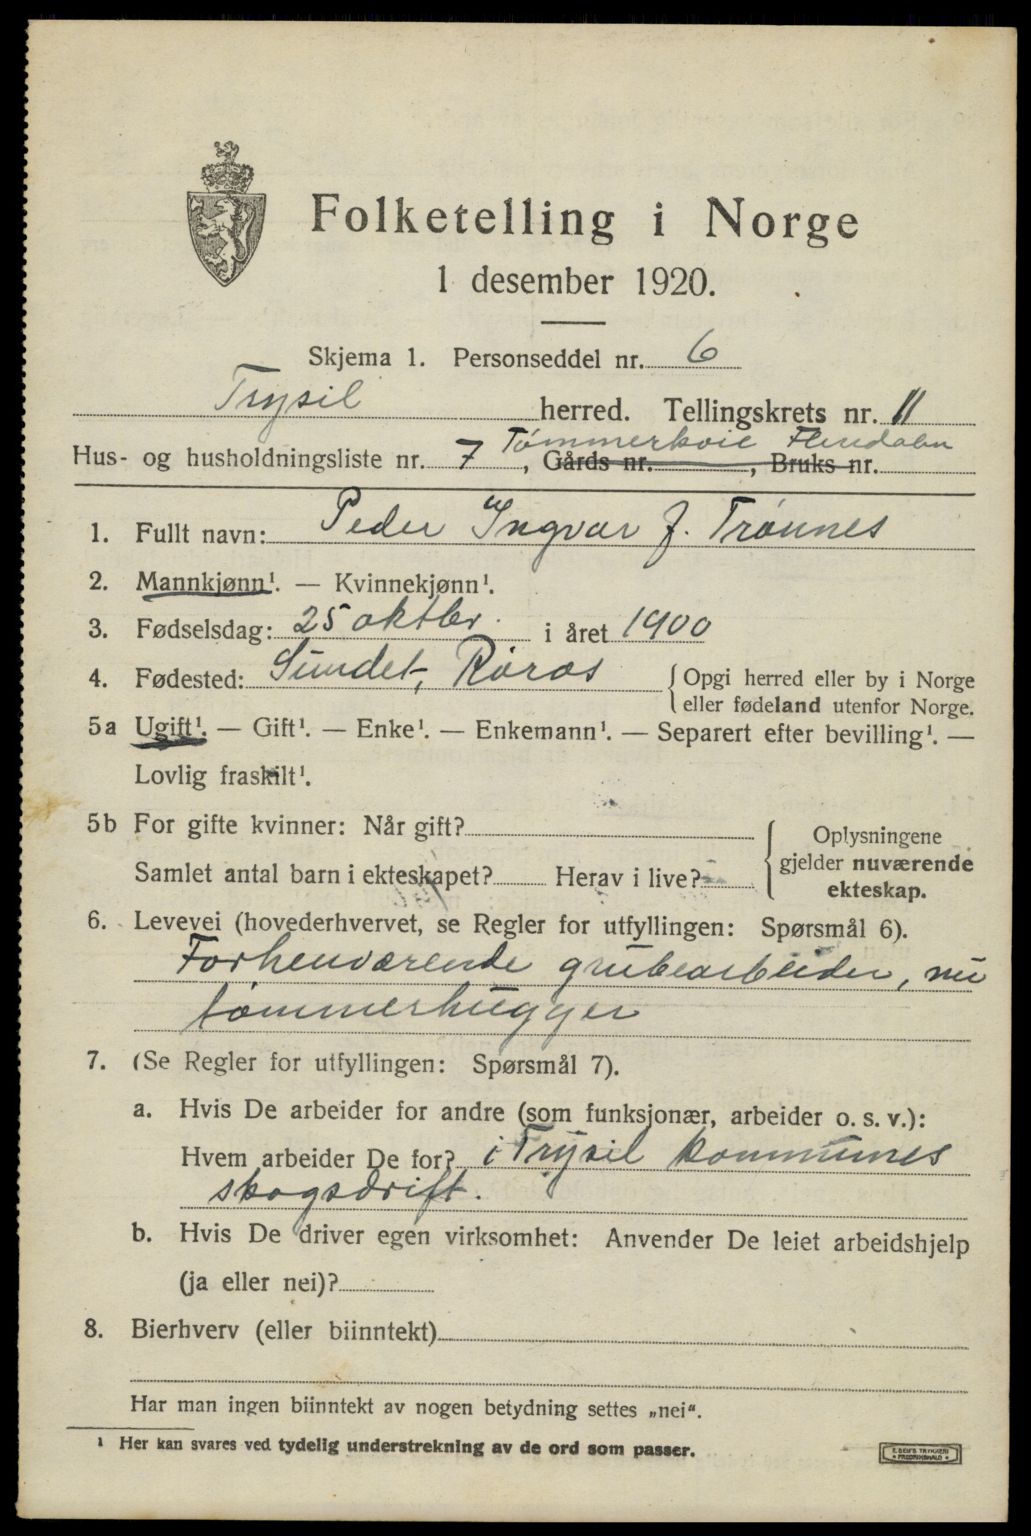 Folketelling i Norge
1 desember 1920.
Skjema 1. Personseddel nr. 6
Trysil herred. Tellingskrets nr. 11
Tømmerkoie Flendalen
Hus- og husholdningsliste nr. 7, Gårds nr. , Bruks nr.
1. Fullt navn: Peder Ingvar J. Trønnes
2. Mannkjønn¹. — Kvinnekjønn¹.
3. Fødselsdag: 25 oktbr. i året 1900
4. Fødested: Sundet, Røros { Opgi herred eller by i Norge
eller fødeland utenfor Norge.
5a Ugift¹. — Gift¹. — Enke¹. — Enkemann¹. — Separert efter bevilling¹. —
Lovlig fraskilt¹.
5b For gifte kvinner: Når gift?
Samlet antal barn i ekteskapet? Herav i live?
{ Oplysningene
gjelder nuværende
ekteskap.
6. Levevei (hovederhvervet, se Regler for utfyllingen: Spørsmål 6).
Forhenværende grubearbeider, nu
tømmerhugger
7. (Se Regler for utfyllingen: Spørsmål 7).
a. Hvis De arbeider for andre (som funksjonær, arbeider o. s. v.):
Hvem arbeider De for? i Trysil kommunes
skogsdrift.
b. Hvis De driver egen virksomhet: Anvender De leiet arbeidshjelp
(ja eller nei)?
8. Bierhverv (eller biinntekt)
Har man ingen biinntekt av nogen betydning settes „nei“.
¹ Her kan svares ved tydelig understrekning av de ord som passer.
TRYKKERI
FREDRIKSHALD